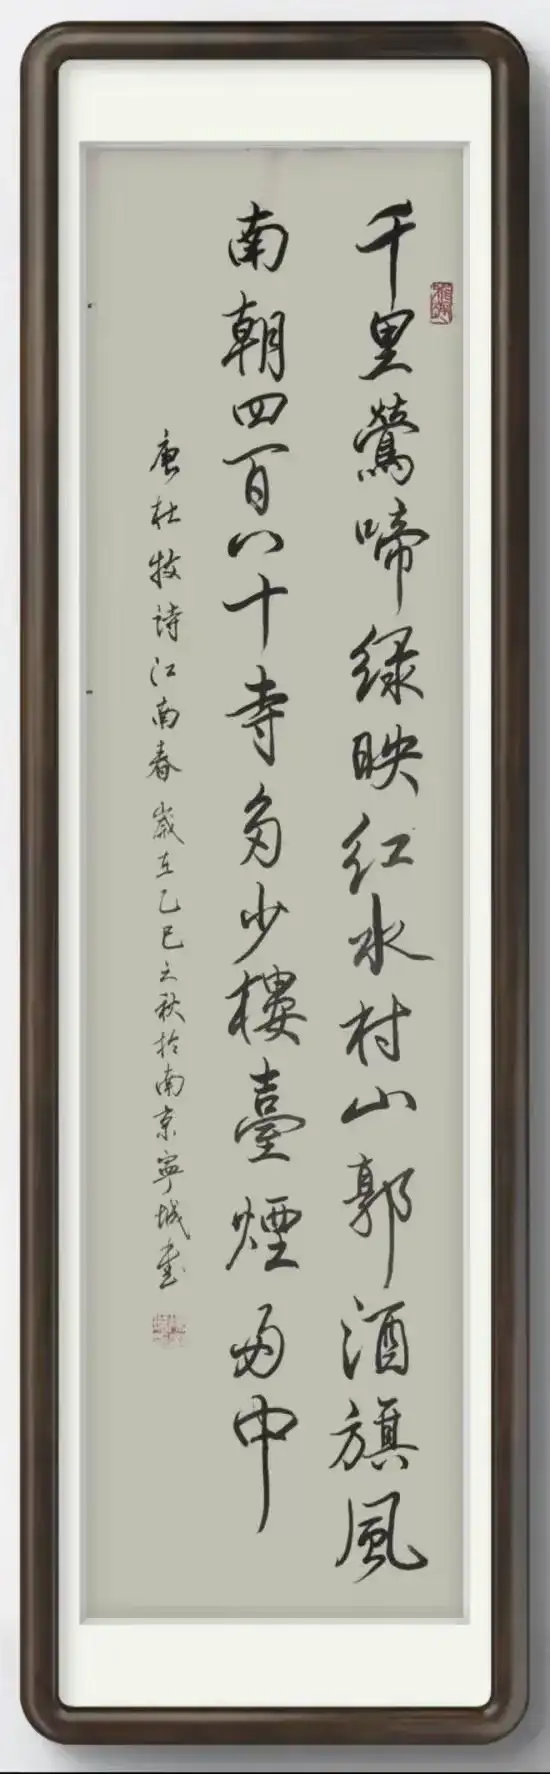 千里鶯啼绿映红水村山郭酒旗風
南朝四百八十寺多少樓臺煙雨中
唐杜牧诗江南春歲在乙巳之秋於南京寧城書